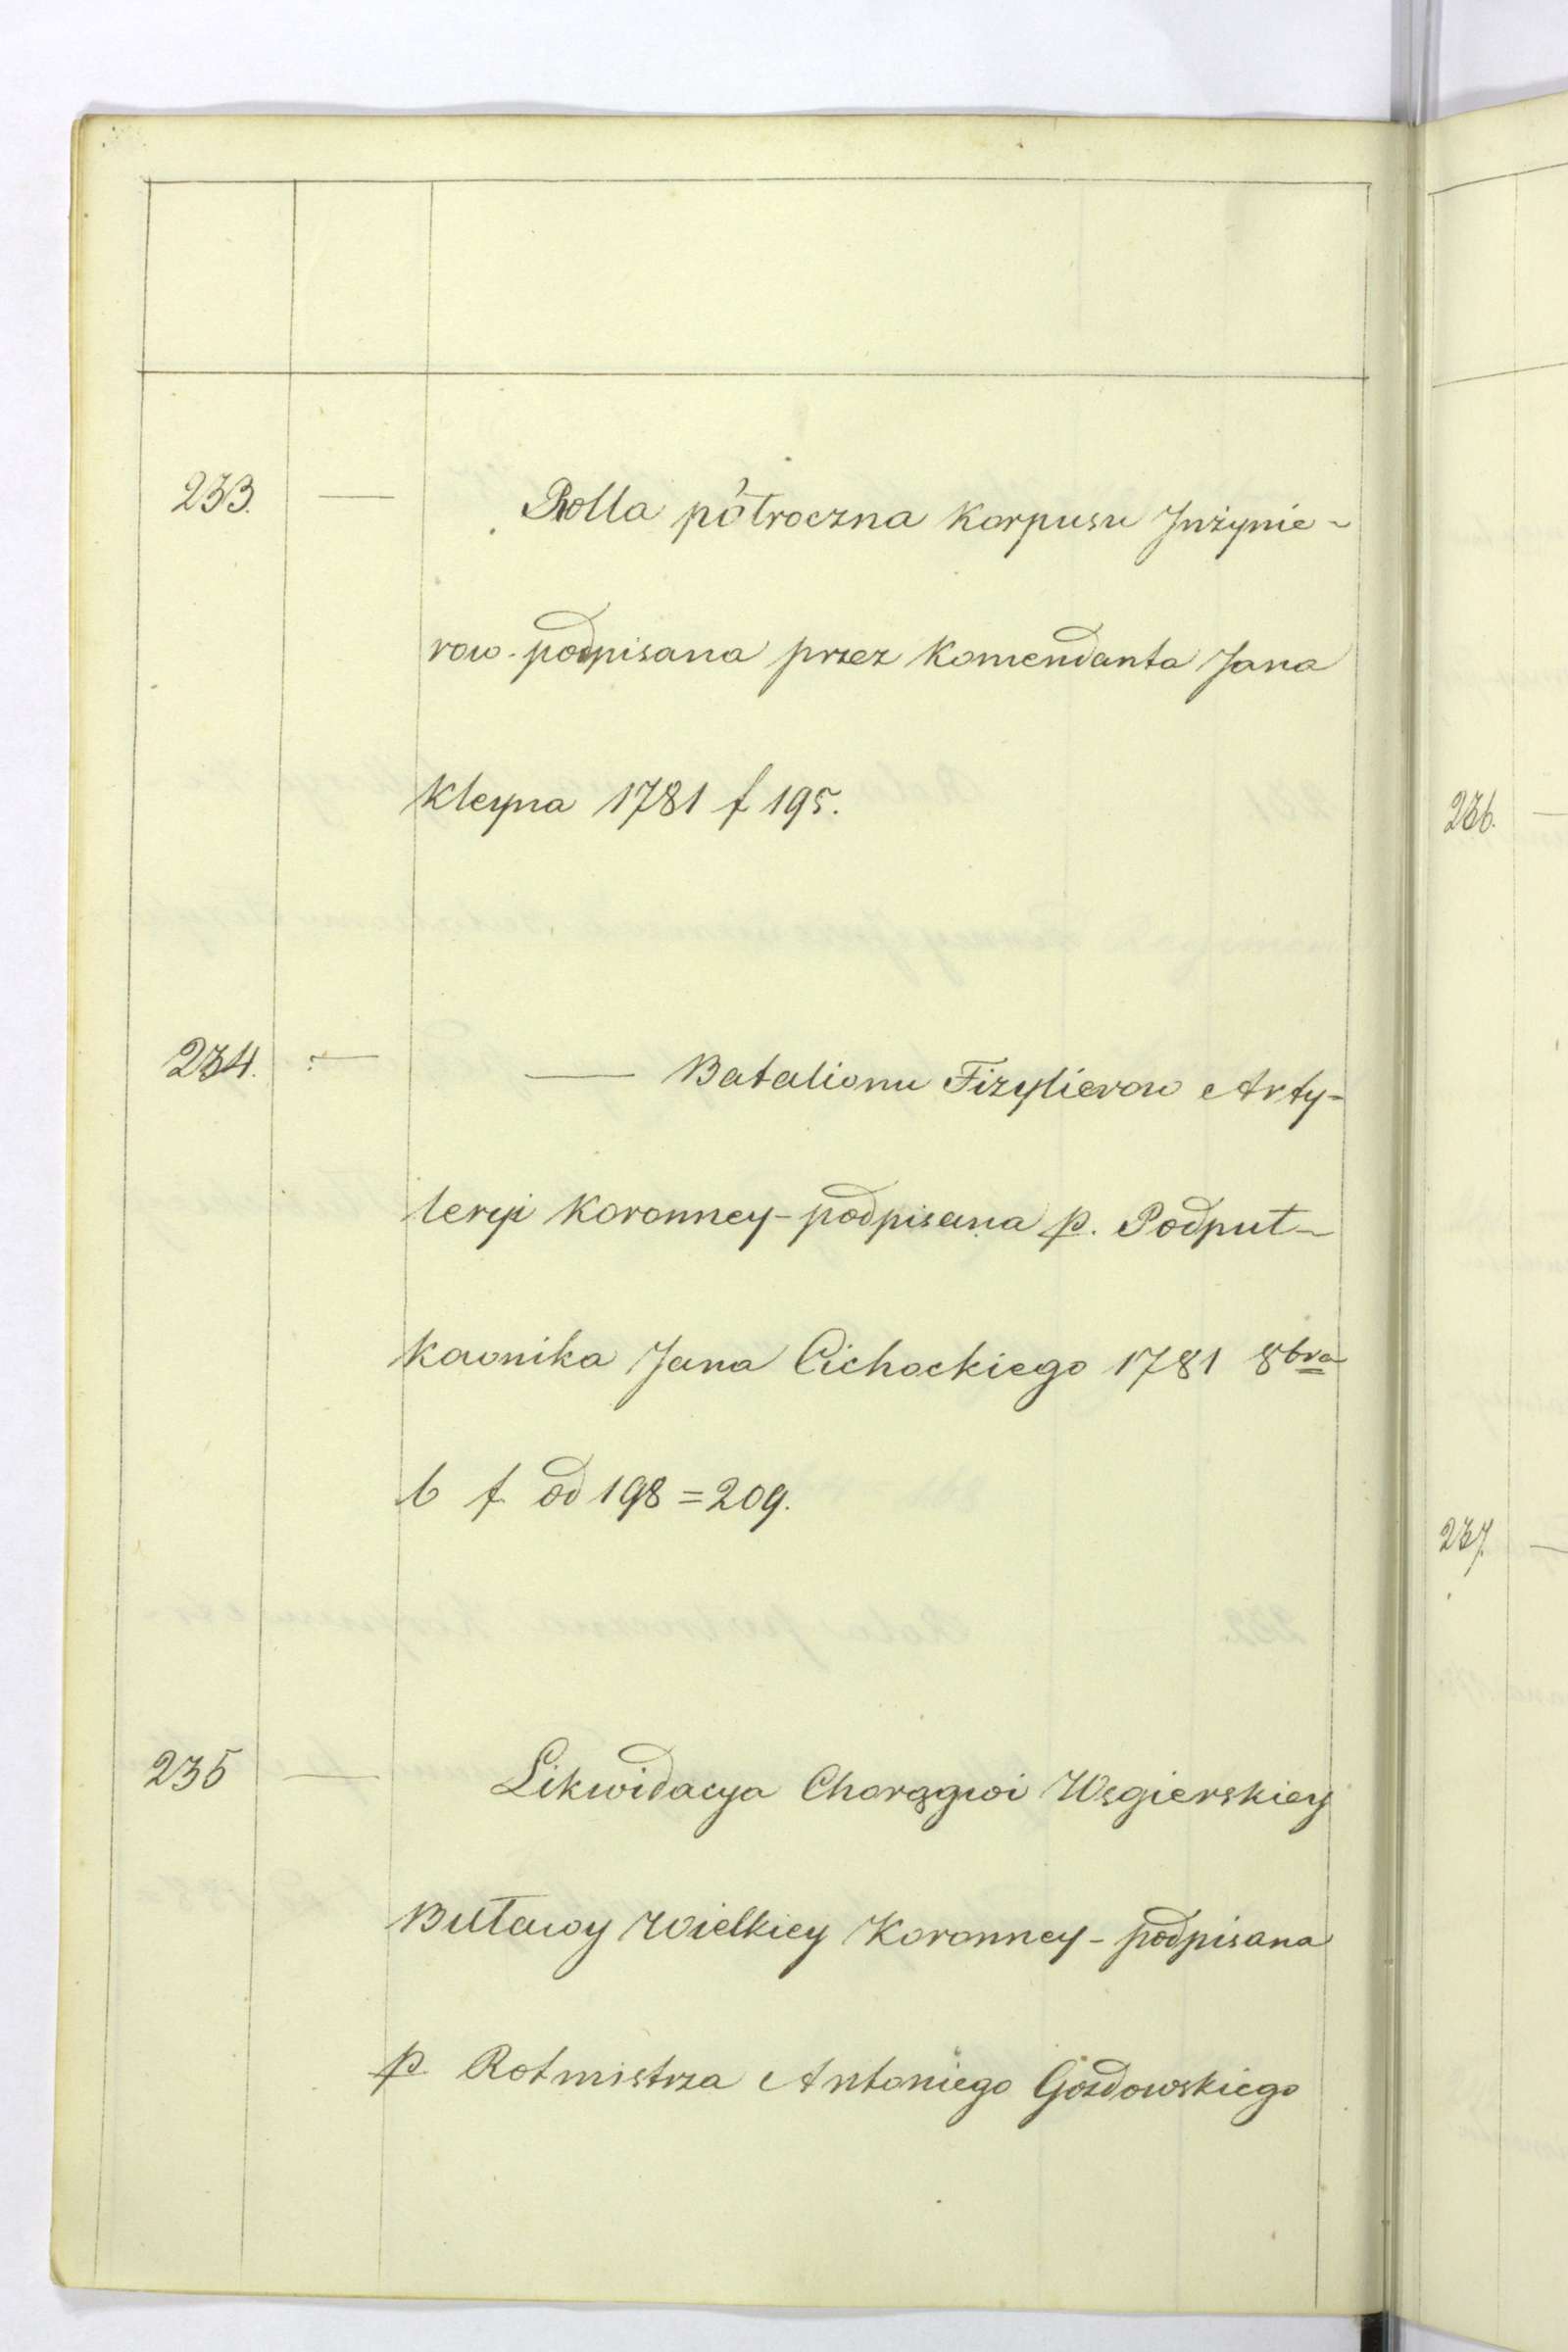 233. — Rolla półroczna Korpusu Jnżynie-
row - podpisana przez Komendanta Jana
Kleyna 1781 f 195.
234. — — Batalionu Fizylierow Arty-
leryi Koronney - podpisana p. Podpuł-
kownika Jana Cichockiego 1781 8bra
b f od 198 = 209.
235 — Likwidacya Chorągwi Węgierskiey
Buławy Wielkiey Koronney - podpisana
p Rotmistrza Antoniego Gozdowskiego
236. —
237. —